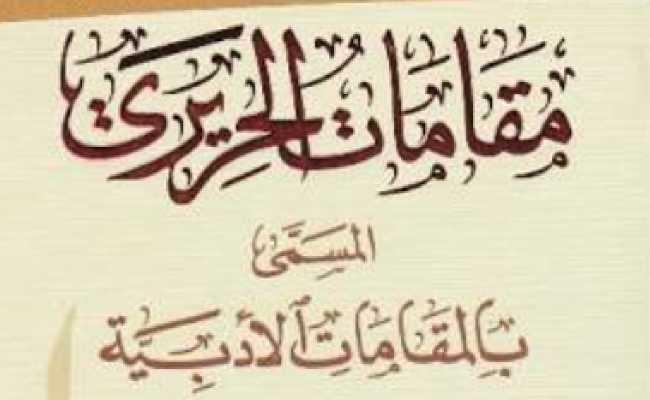 مقامات الحريري
المسمى
بالمقامات الأدبية